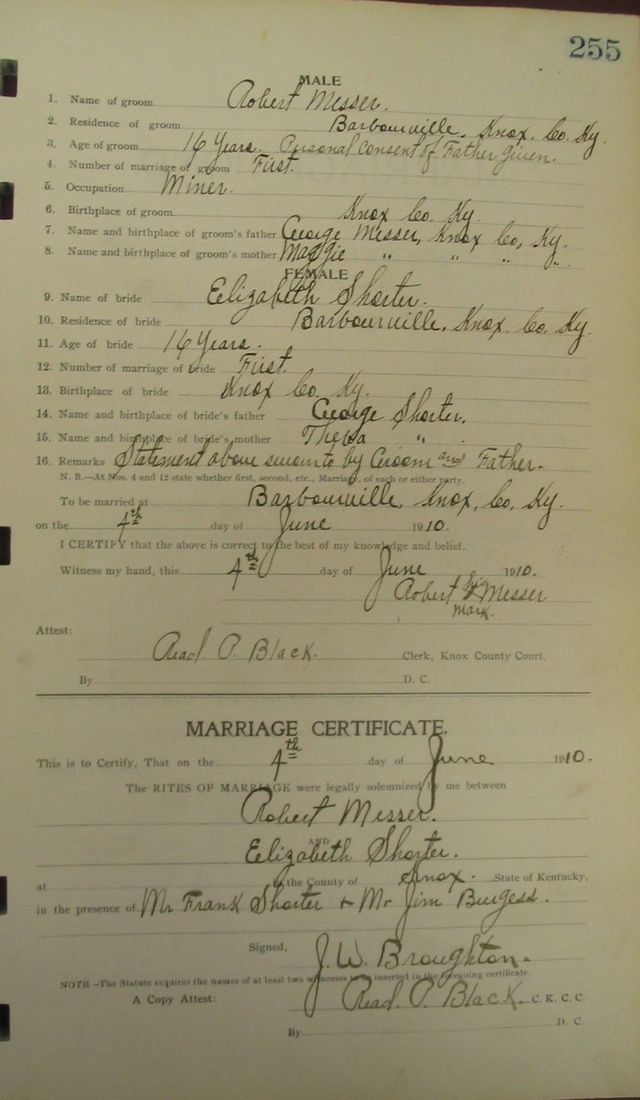 255
MALE
1. Name of groom Robert Messer.
2. Residence of groom Barbourville, Knox. Co. Ky.
3. Age of groom 16 Years. Personal Consent of Father Given.
4. Number of marriage of groom First.
5. Occupation Miner.
6. Birthplace of groom Knox Co. Ky.
7. Name and birthplace of groom's father George Messer, Knox Co, Ky.
8. Name and birthplace of groom's mother Maggie " " " "
FEMALE
9. Name of bride Elizabeth Shorter.
10. Residence of bride Barbourville, Knox. Co. Ky.
11. Age of bride 16 Years.
12. Number of marriage of bride First.
13. Birthplace of bride Knox Co. Ky.
14. Name and birthplace of bride's father George Shorter.
15. Name and birthplace of bride's mother "
16. Remarks Statement above sworn to by Groom and Father.
N. B.—At Nos. 4 and 12 state whether first, second, etc., Marriage, of each or either party.
To be married at Barbourville, Knox, Co, Ky.
on the 4th day of June 1910.
I CERTIFY that the above is correct to the best of my knowledge and belief.
Witness my hand, this 4th day of June 1910.
Robert his x Messer
mark.
Attest:
Read. P. Black. Clerk, Knox County Court.
By D. C.
MARRIAGE CERTIFICATE.
This is to Certify, That on the 4th day of June 1910.
The RITES OF MARRIAGE were legally solemnized by me between
Robert Messer.
AND
Elizabeth Shorter.
at in the County of Knox. State of Kentucky,
in the presence of Mr Frank Shorter + Mr Jim Burgess.
Signed, J. W. Broughton.
NOTE—The Statute requires the names of at least two witnesses to be inserted in the foregoing certificate.
A Copy Attest: Read. P. Black. C. K. C. C.
By D. C.